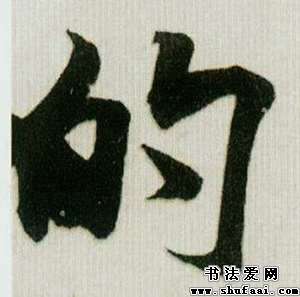 的
书法爱网
www.shufaai.com